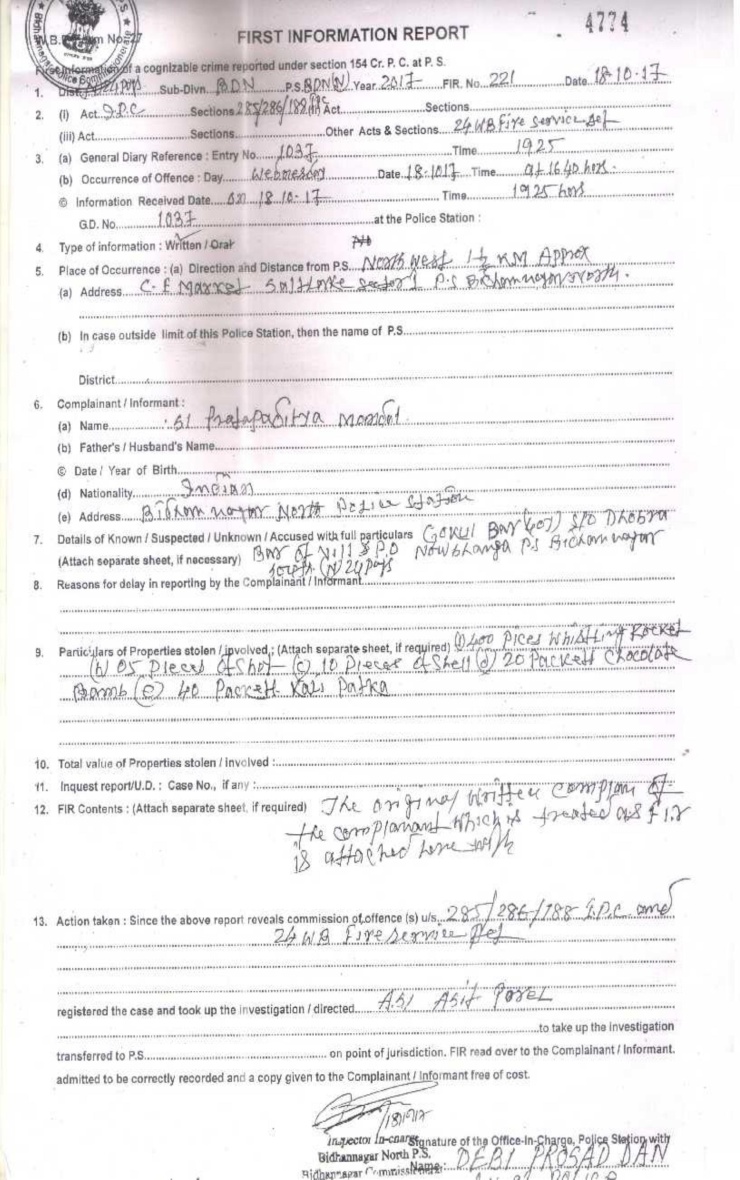 4774
FIRST INFORMATION REPORT
W.B. Form No. 27
First Information of a cognizable crime reported under section 154 Cr. P. C. at P. S.
1. Dist. (N) 24 Pgs Sub-Divn. BDN P.S. BDN(N) Year 2017 FIR. No. 221 Date 18-10-17
2. (i) Act I.P.C Sections 285/286/188 IPC (ii) Act Sections
(iii) Act Sections Other Acts & Sections 24 WB Fire Service Act
3. (a) General Diary Reference : Entry No. 1037 Time 1925
(b) Occurrence of Offence : Day Wednesday Date 18-1017 Time at 16.40 hrs.
© Information Received Date on 18-10-17 Time 1925 hors
G.D. No. 1037 at the Police Station :
4. Type of information : Written / Oral
5. Place of Occurrence : (a) Direction and Distance from P.S. North West 1½ KM Approx
(a) Address C.F Market Saltlake Sector 1 P.S Bidhannagar North.
(b) In case outside limit of this Police Station, then the name of P.S.
District
6. Complainant / Informant :
(a) Name SI Pratapaditya Mondal
(b) Father's / Husband's Name
© Date / Year of Birth
(d) Nationality Indian
(e) Address Bidhannagar North Police Station
7. Details of Known / Suspected / Unknown / Accused with full particulars Gokul Bar (40) S/O Dhobra
(Attach separate sheet, if necessary) Bar of Vill & P.O Nowbhanga P.S Bidhannagar
South (N) 24 Pgs
8. Reasons for delay in reporting by the Complainant / Informant
9. Particulars of Properties stolen / involved : (Attach separate sheet, if required) 400 Pices Whistling Rocket
(b) 05 Pieces of Shot (c) 10 Pieces of Shell (d) 20 Packett Chocolate
Bomb (e) 40 Packett Kali Patka
10. Total value of Properties stolen / Involved :
11. Inquest report/U.D. : Case No., if any :
12. FIR Contents : (Attach separate sheet, if required) The original written complain of
the complanant which is treated as F.I.R
is attached here with
13. Action taken : Since the above report reveals commission of offence (s) u/s. 285/286/188 I.P.C and
24 WB Fire Service Act
registered the case and took up the investigation / directed ASI Asit Porel
to take up the investigation
transferred to P.S. on point of jurisdiction. FIR read over to the Complainant / Informant.
admitted to be correctly recorded and a copy given to the Complainant / Informant free of cost.
18/10/17
Inspector In-charge Signature of the Office-In-Charge, Police Station with
Bidhannagar North P.S. Name : DEBI PROSAD DAN
Bidhannagar Commissionerate